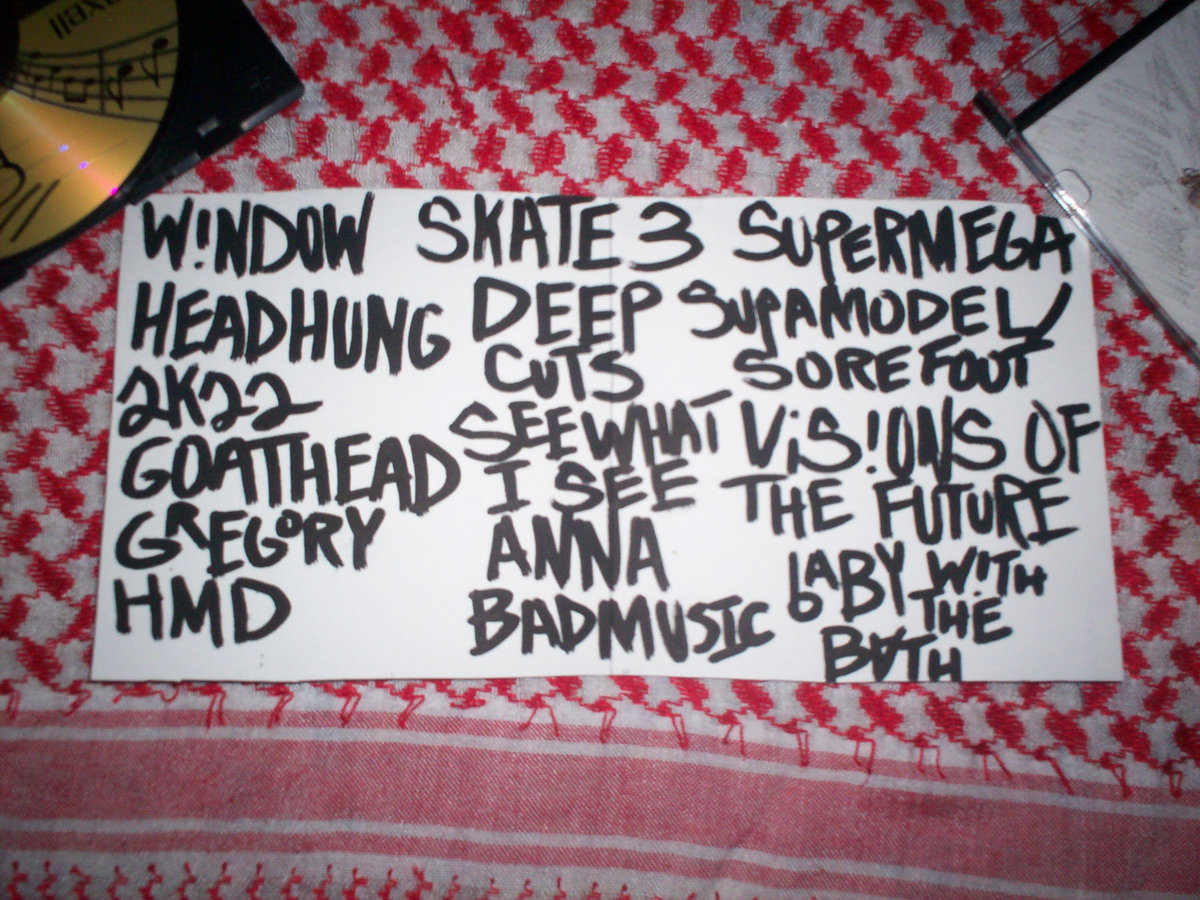 maxell
W!NDOW
HEADHUNG
2K22
GOATHEAD
GREGORY
HMD
SKATE 3
DEEP
CUTS
SEE WHAT
I SEE
ANNA
BADMUSIC
SUPERMEGA
SUPAMODEL/
SOREFOOT
ViS!ONS OF
THE FUTURE
bABY W!TH
THE
BATH